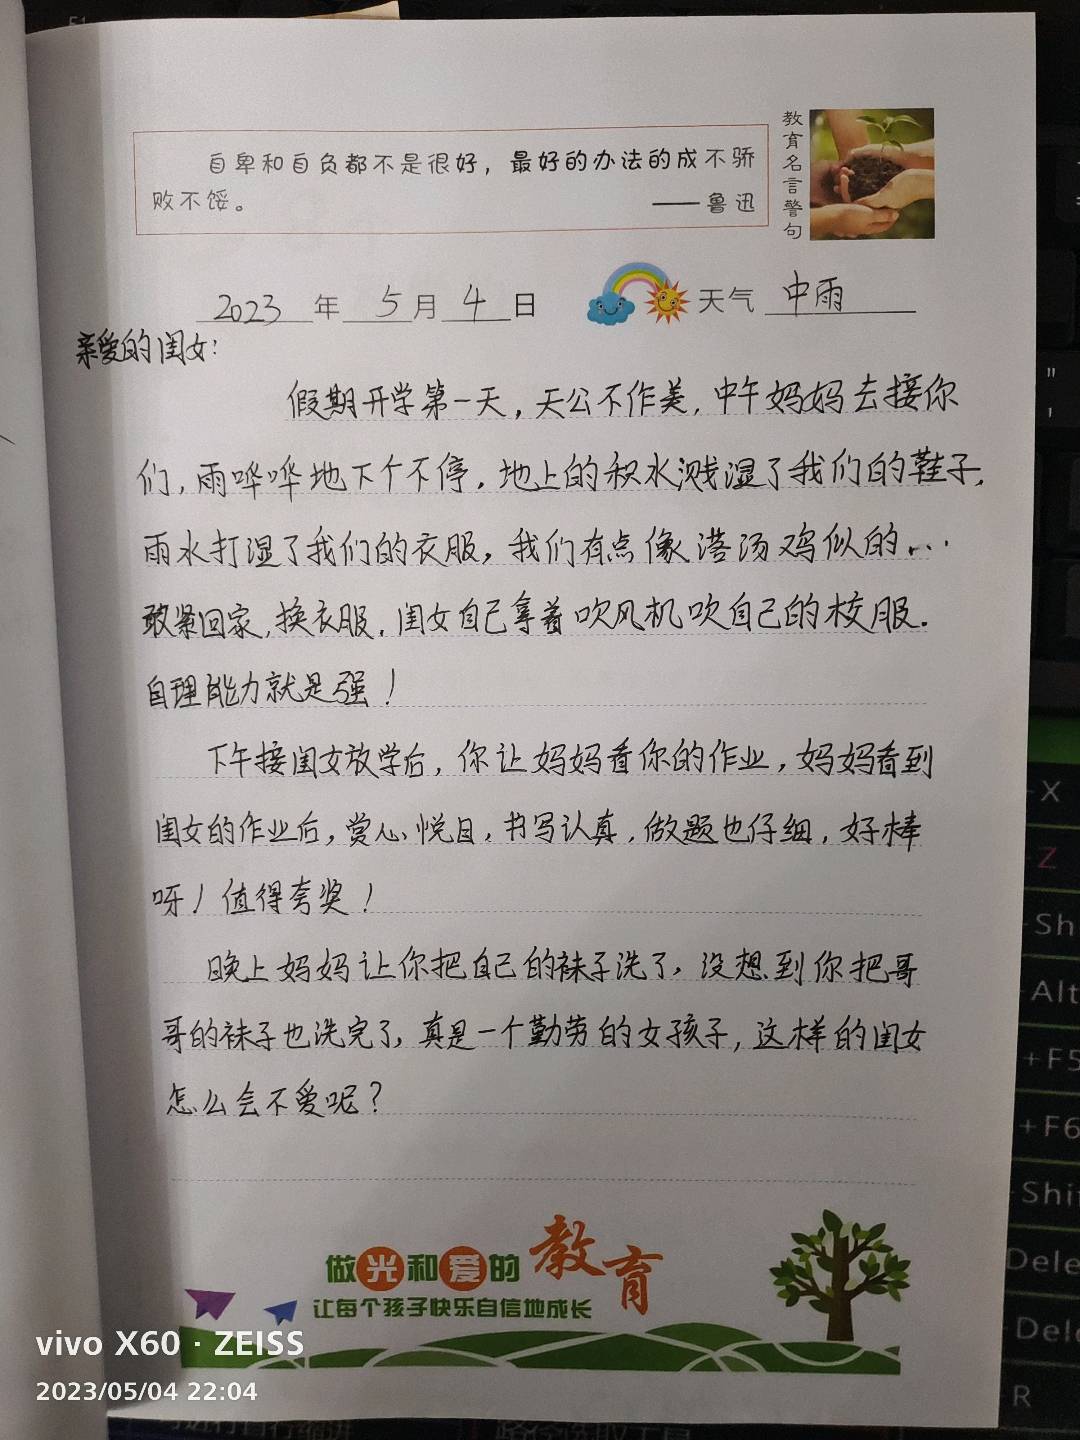 自卑和自负都不是很好，最好的办法的成不骄
败不馁。 ——鲁迅
教育名言警句
2023年5月4日 天气 中雨
亲爱的闺女：
假期开学第一天，天公不作美，中午妈妈去接你
们，雨哗哗地下个不停，地上的积水溅湿了我们的鞋子，
雨水打湿了我们的衣服，我们有点像落汤鸡似的...
敢紧回家，换衣服，闺女自己拿着吹风机吹自己的校服。
自理能力就是强！
下午接闺女放学后，你让妈妈看你的作业，妈妈看到
闺女的作业后，赏心悦目，书写认真，做题也仔细，好棒
呀！值得夸奖！
晚上妈妈让你把自己的袜子洗了，没想到你把哥
哥的袜子也洗完了，真是一个勤劳的女孩子，这样的闺女
怎么会不爱呢？
做光和爱的教育
让每个孩子快乐自信地成长
vivo X60 · ZEISS
2023/05/04 22:04
X
Z
Sh
Alt
+F5
+F6
Shi
Dele
Dele
R